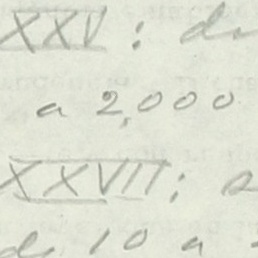 XXV: de
a 2,000
XXVII:
de 10 a